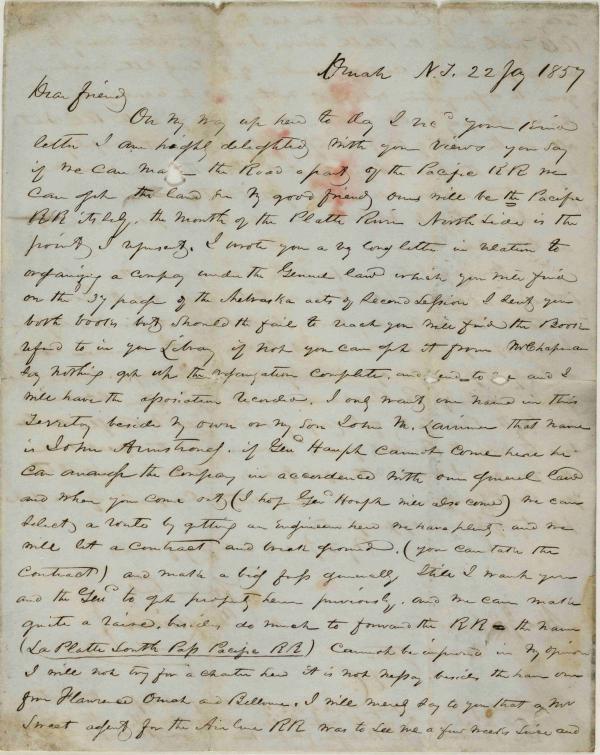 Omah N.T. 22 Jay 1857
Dear friend
On my way up here to day I recd your kind
letter I am highly delighted with your views you say
if we can make the Road apart of the Pacific RR we
can get the land &c My good friend ours will be the Pacific
RR itself. the mouth of the Platte River North Side is the
point I represent. I wrote you a vy long letter in relation to
organizing a compay under the General law which you will find
on the 37 page of the Nebraska acts of Second Session I sent you
both books but should the fail to reach you will find the Book
referd to in your Library if not you can get it from Mr Chapman
Say nothing get up the organization complete. and send to me and I
will have the association recorded. I only want one name in this
Territory beside my own or my son John M. Larimer that name
is John Armstrong. if Genl Haupt cannot come here he
can arrange the Company in accordence with our general law
and when you come out (I hope Genl Haupt will also come) we can
select a route by getting an Engineer here we have plenty and we
will let a contract and break ground. (you can take the
contract) and make a big fuss generally Still I want you
and the Genl to get property here previously. and we can make
quite a raise. besides do much to forward the RR the name
(La Platte South Pass Pacific RR) cannot be improved in my opinion
I will not try for a charter here it is not nessay besides the have one
from Florence Omah and Bellevue. I will merely say to you that a Mr
Sweet agent for the Air line RR was to see me a few weeks since and